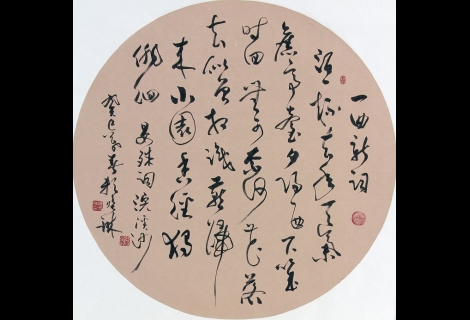 一曲新詞
酒一杯去年天氣
舊亭臺夕陽西下幾
時回無可奈何花落
去似曾相識燕歸
來小園香徑獨
徘徊
晏殊詞浣溪沙
癸巳